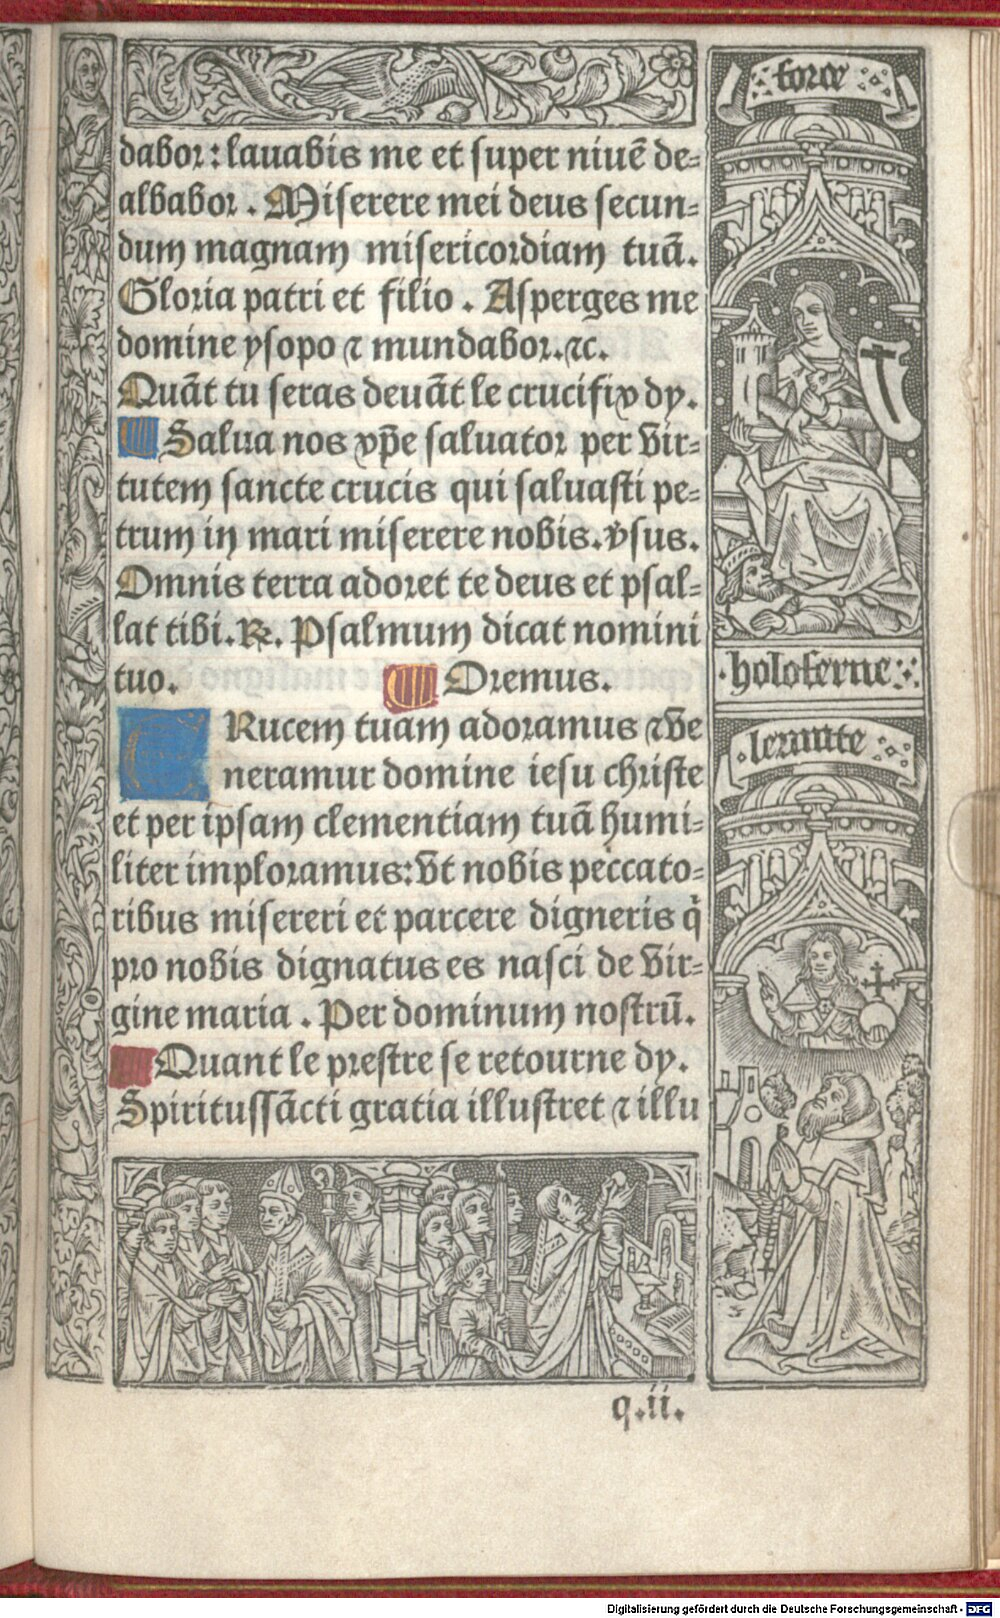 dabor: lauabis me et super niuē de=
albabor. Miserere mei deus secun=
dum magnam misericordiam tuā.
Gloria patri et filio. Asperges me
domine ysopo ⁊ mundabor.⁊c.
Quāt tu seras deuāt le crucifix dy.
Salua nos xp̄e saluator per vir=
tutem sancte crucis qui saluasti pe=
trum in mari miserere nobis. v̾sus.
Omnis terra adoret te deus et psal=
lat tibi. ℞. Psalmum dicat nomini
tuo. Oremus.
CRucem tuam adoramus ⁊ ve
neramur domine iesu christe
et per ipsam clementiam tuā humi=
liter imploramus: vt nobis peccato=
ribus misereri et parcere digneris q̄
pro nobis dignatus es nasci de vir=
gine maria. Per dominum nostrū.
Quant le prestre se retourne dy.
Spiritussācti gratia illustret ⁊ illu
q.ii.
force
holoferne
lermite
Digitalisierung gefördert durch die Deutsche Forschungsgemeinschaft - DFG